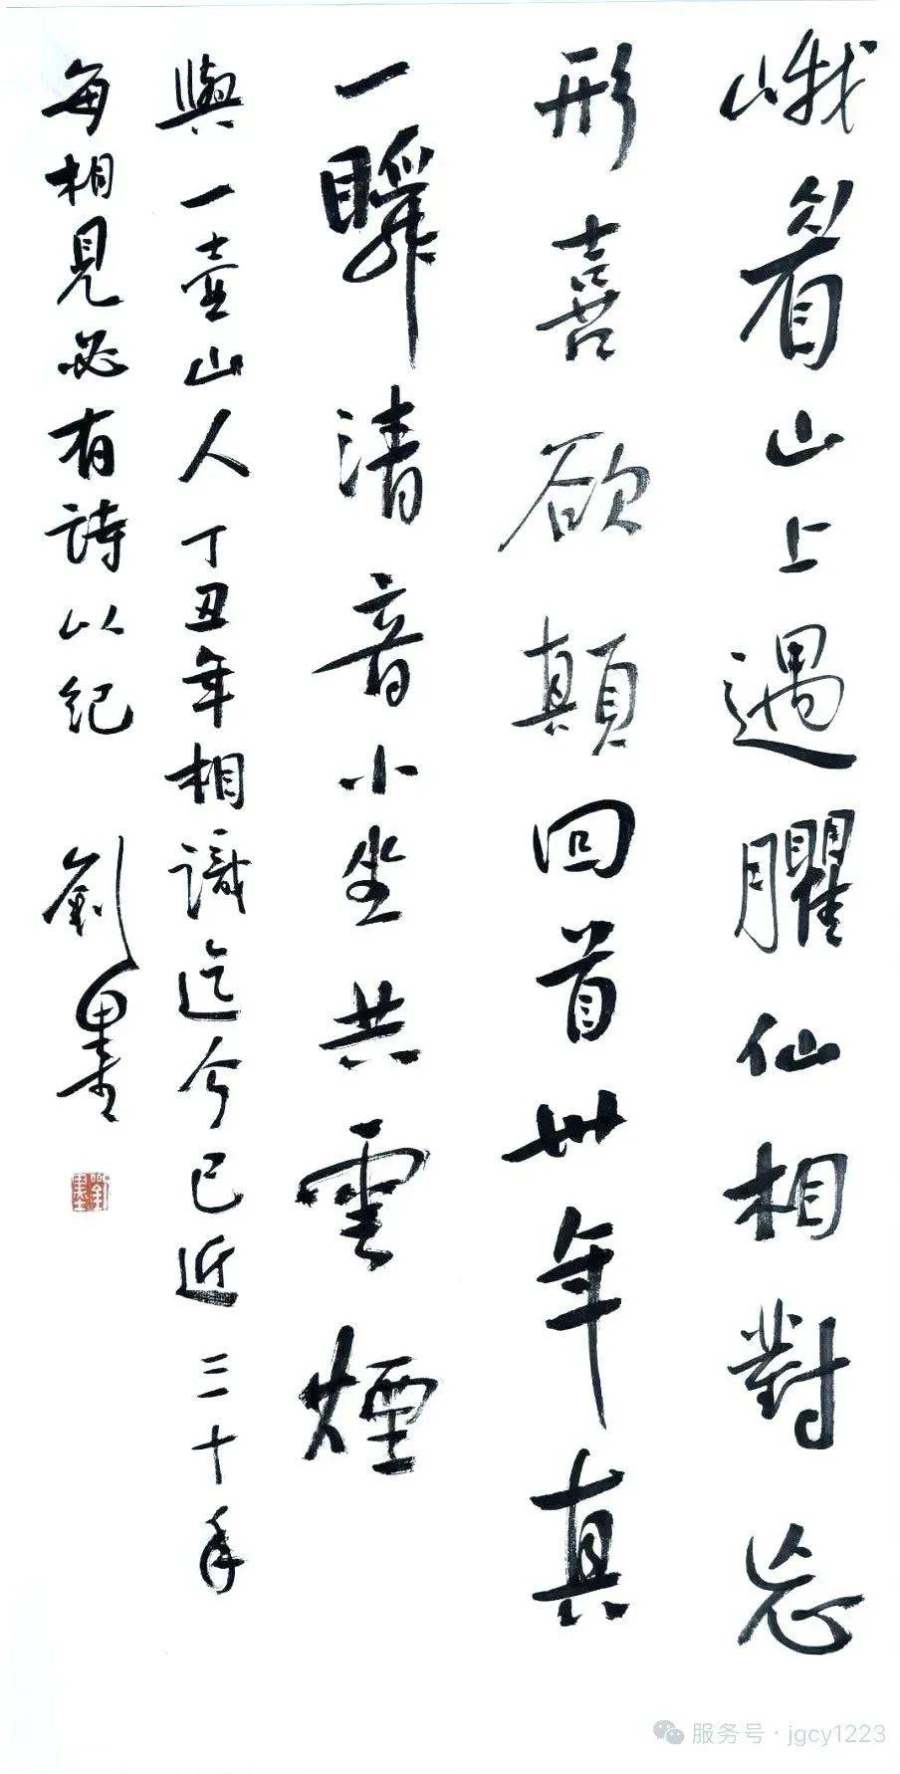 峨眉山上遇臞仙相對忘
形喜欲顛回首卅年真
一瞬清音小坐共雲煙
與一壺山人丁丑年相識迄今已近三十年
每相見必有詩以紀 劉墨
劉墨
服务号·jgcy1223